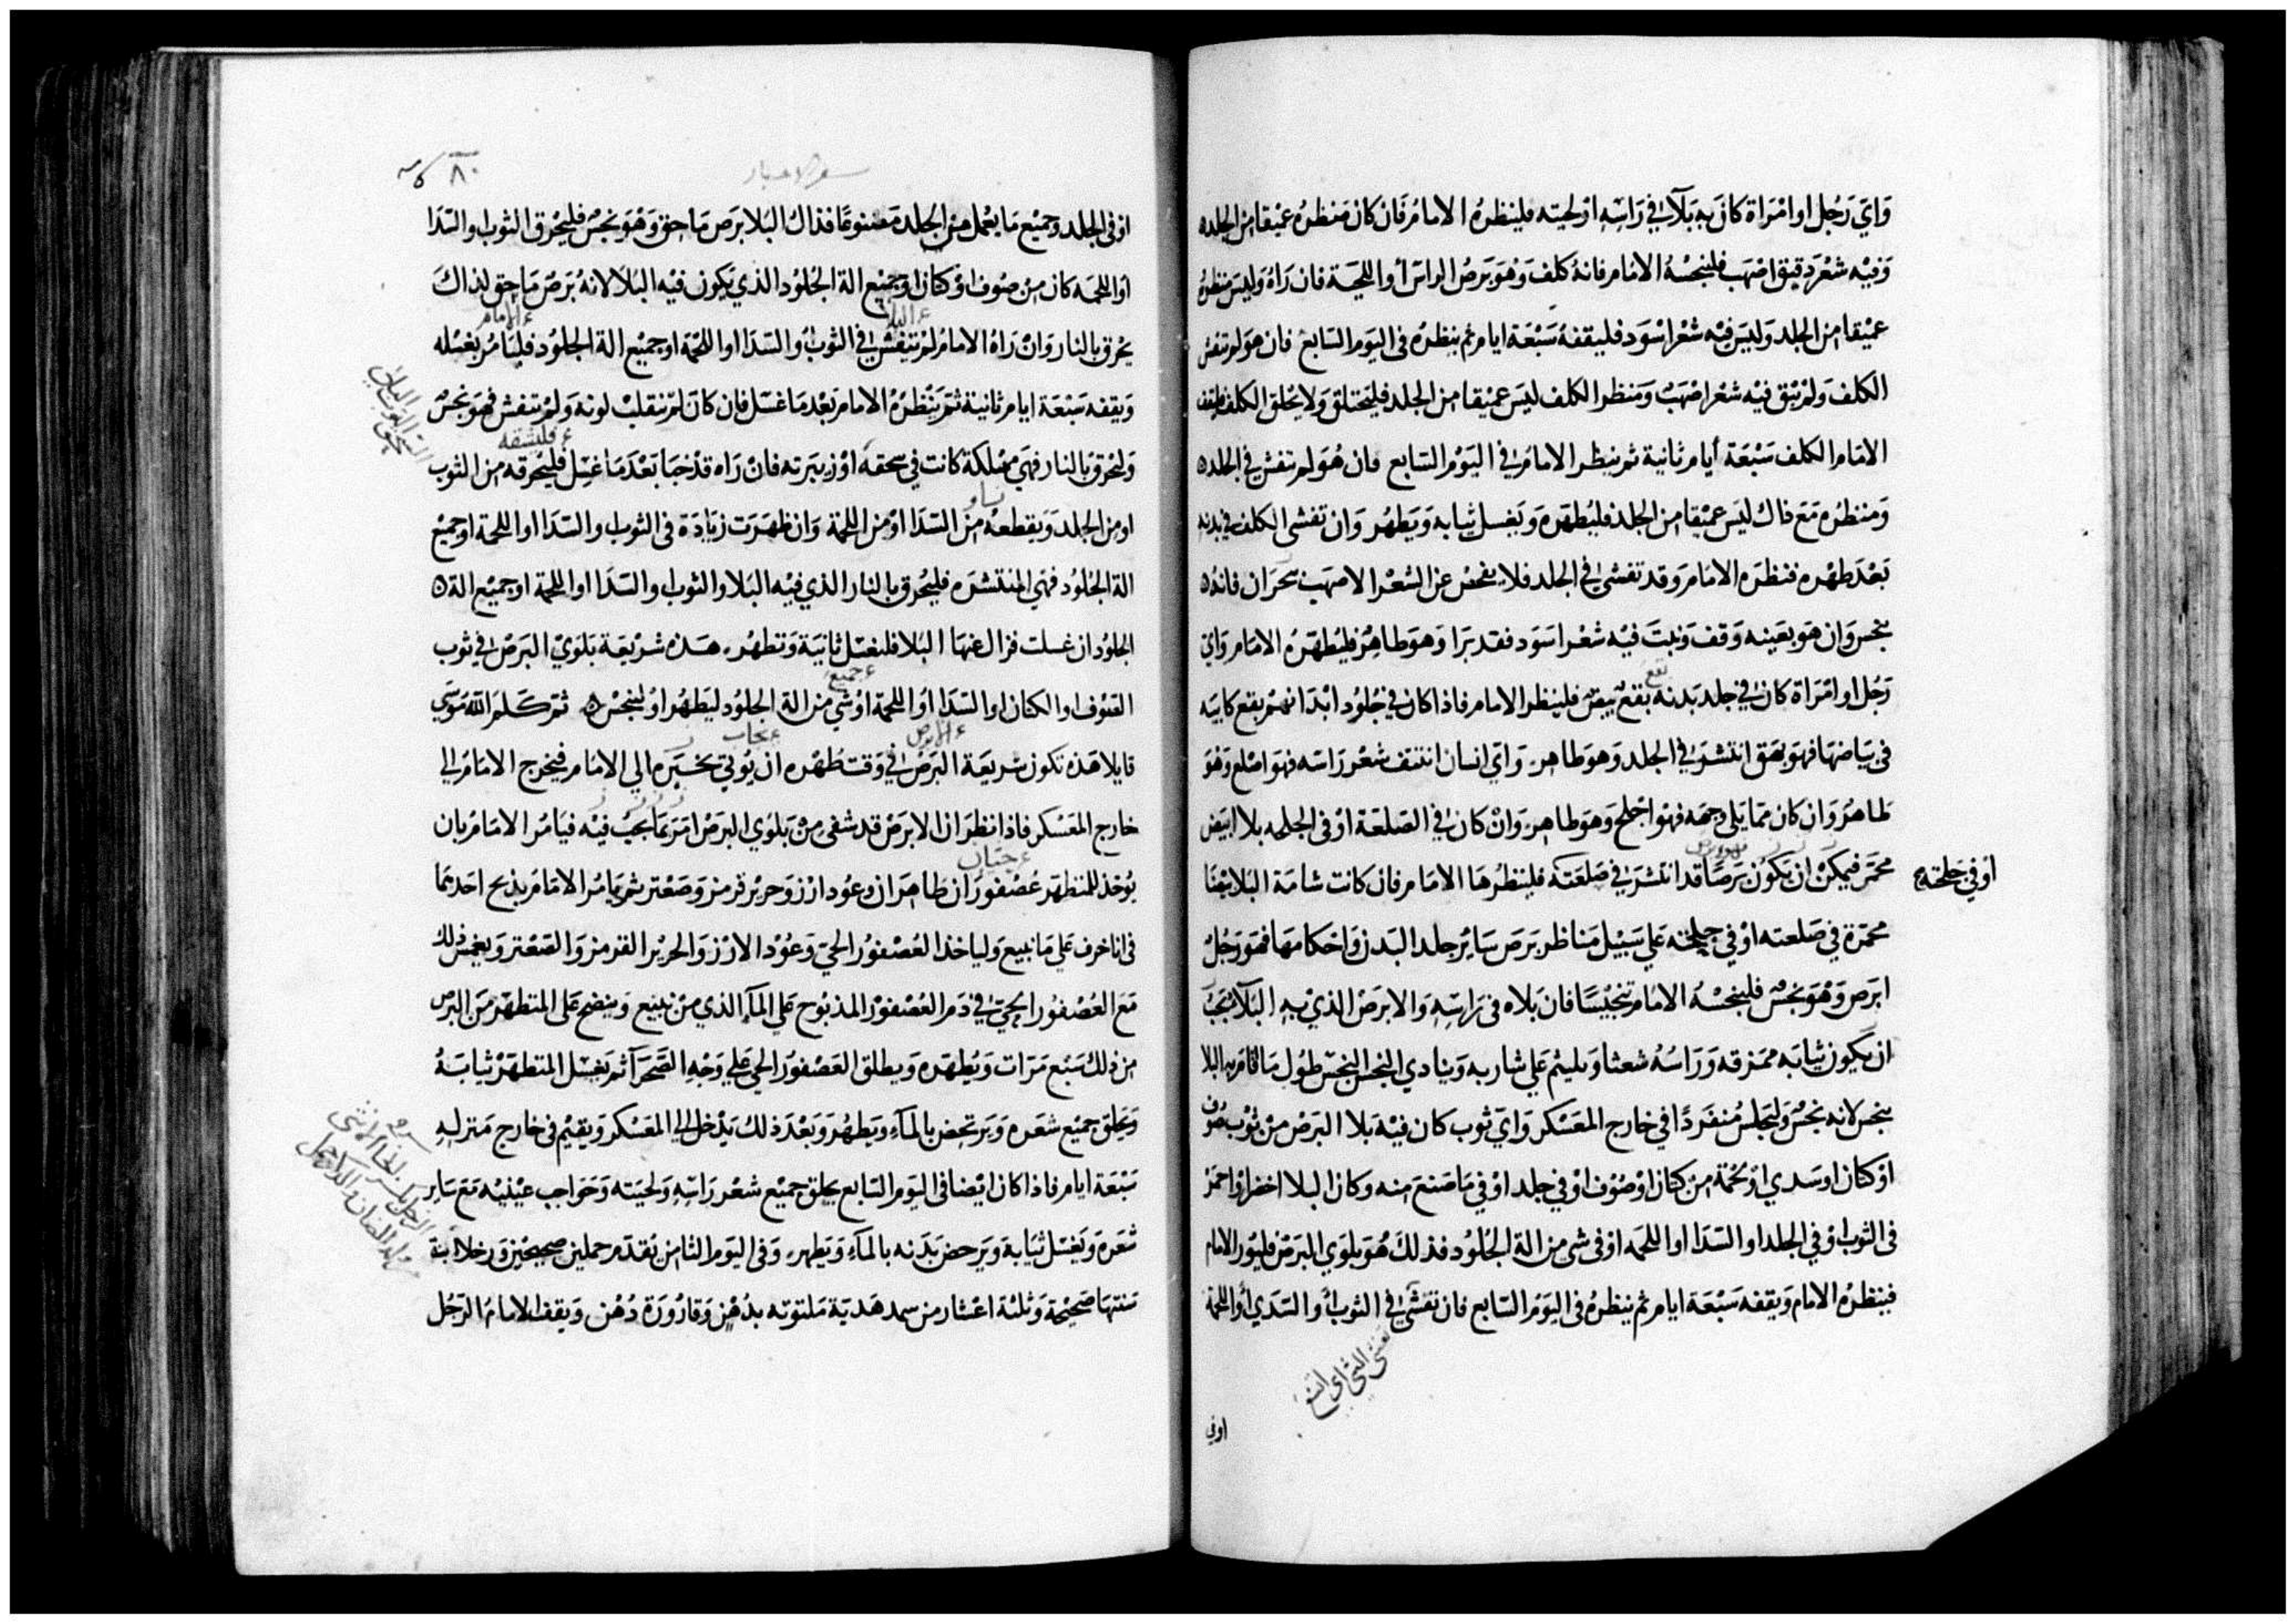 واي رجل او امراة كان به بلآ في راسه او لحيته فلينظره الامام فان كان منظره عميقا من الجلد
وفيه شعر دقيق اصهب فلينجسه الامام فانه كلف وهو برص الراس أو اللحية فان راه وليس منظره
عميقا من الجلد وليس فيه شعر اسود فليقفه سبعة ايام ثم ينظره في اليوم السابع فان هو لم تفش
الكلف ولم يبق فيه شعر اصهب ومنظر الكلف ليس عميقا من الجلد فليحتلق ولا يحلق الكلف
الامام الكلف سبعة أيام ثانية ثم ينظر الامام في اليوم السابع فان هو لم تفش في الجلد
ومنظره مع ذاك ليس عميقا من الجلد فليطهره ويغسل ثيابه ويطهر وان تفشى الكلف في بدنه
بعد طهره فنظره الامام وقد تفشى في الجلد فلا يفحص عن الشعر الاصهب فانه
نجس وان هو بعينه وقف ونبت فيه شعر اسود فقد برا وهو طاهر فليطهره الامام واي
رجل او امراة كان في جلد بدنه بقع بيض فلينظر الامام فاذا كان في جلود ابدانهم بقع كابيه
في بياضها فهو بهق انتشر في الجلد وهو طاهر واي انسان انتتف شعر راسه فهو اصلع وهو
طاهر وان كان مما يلي وجهه فهو اجلح وهو طاهر وان كان في الصلعة او في الجلحه بلا ابيض
محمر فيمكن ان يكون برصا قد انتشر في صلعته فلينظرها الامام فان كانت شامة البلا بيضا
او في جلحته
محمرة في صلعته او في جلحته علي سبيل مناظر برص ساير جلد البدن واحكامها فهو رجل
ابرص وهو نجس فلينجسه الامام تنجيسا فان بلاه في راسه والابرص الذي به البلآ يجب
ان يكون ثيابه ممزقه وراسه شعثا ويلثم علي شاربه وينادي النجس النجس طول ما اقام به البلا
نجس لانه نجس وليجلس منفردا في خارج المعسكر واي ثوب كان فيه بلا البرص من ثوب صوف
او كتان او سدي او لحمة من كتان او صوف او في جلد او في ما صنع منه وكان البلا اخضر او احمر
في الثوب او في الجلد او السدا او اللحمه او في شي من الة الجلود فذلك هو بلوي البرص فليور الامام
فينظره الامام ويقفه سبعة ايام ثم ينظره في اليوم السابع فان تفشى في الثوب أو السدي أو اللحمة
اوفي
سفر الاحبار
٨٠
او في الجلد وجميع ما يعمل من الجلد مصنوعا فذاك البلا برص ماحق وهو نجس فليحرق الثوب والسدا
او اللحمه كان من صوف او كتان او جميع الة الجلود الذي يكون فيه البلا لانه برص ماحق لذاك
ء البلا
ء الامام
يحرق بالنار وان راه الامام لم تتفش في الثوب او السدا او اللحمة او جميع الة الجلود فليامر بغسله
ويقفه سبعة ايام ثانية ثم ينظره الامام بعد ما غسل فان كان لم تنقلب لونه ولم تتفش فهو نجس
وليحرق بالنار فهي مهلكة كانت في سحقه او زيبرته فان راه قد خبا بعد ما غسل فليحرقه من الثوب
او من الجلد ويقطعه من السدا او من اللحمة وان ظهرت زيادة في الثوب والسدا او اللحمة او جميع
الة الجلود فهي المنتشره فليحرق بالنار الذي فيه البلا والثوب والسدا او اللحمة او جميع الة
الجلود ان غسلت فزال عنها البلا فلتغسل ثانية وتطهر هذه شريعة بلوي البرص في ثوب
ء جميع
الصوف او الكتان او السدا او اللحمة او شي من الة الجلود ليطهر او لينجس ثم كلم الله موسي
قايلا هذه تكون شريعة البرص في وقت طهره ان يوتي بخبره الي الامام فيخرج الامام الي
خارج المعسكر فاذا نظر ان الابرص قد شفي من بلوي البرص امر بما يجب فيه فيامر الامام بان
يوخذ للمتطهر عصفوران طاهران وعود ارز وحرير قرمز وصعتر ثم يامر الامام بذبح احدهما
في انا خرف علي ما نبيع ولياخذ العصفور الحي وعود الارز والحرير القرمز والصعتر ويغمس ذلك
مع العصفور الحي في دم العصفور المذبوح علي المآ الذي من نبيع وينضح على المتطهر من البرص
من ذلك سبع مرات ويطهره ويطلق العصفور الحي علي وجه الصحرآ ثم يغسل المتطهر ثيابه
ويحلق جميع شعره ويرتحض بالمآء ويطهر وبعد ذلك يدخل الي المعسكر ويقيم في خارج منزله
سبعة ايام فاذا كان ايضا في اليوم السابع يحلق جميع شعر راسه ولحيته وحواجب عينيه مع ساير
شعره ويغسل ثيابه ويرحض بدنه بالمآء ويطهر وفي اليوم الثامن يقدم حملين صحيحين ورخلا ابنة
سنتها صحيحة وثلثة اعشار من سمد هدية ملتوته بدهن وقارورة دهن ويقف الامام الرجل